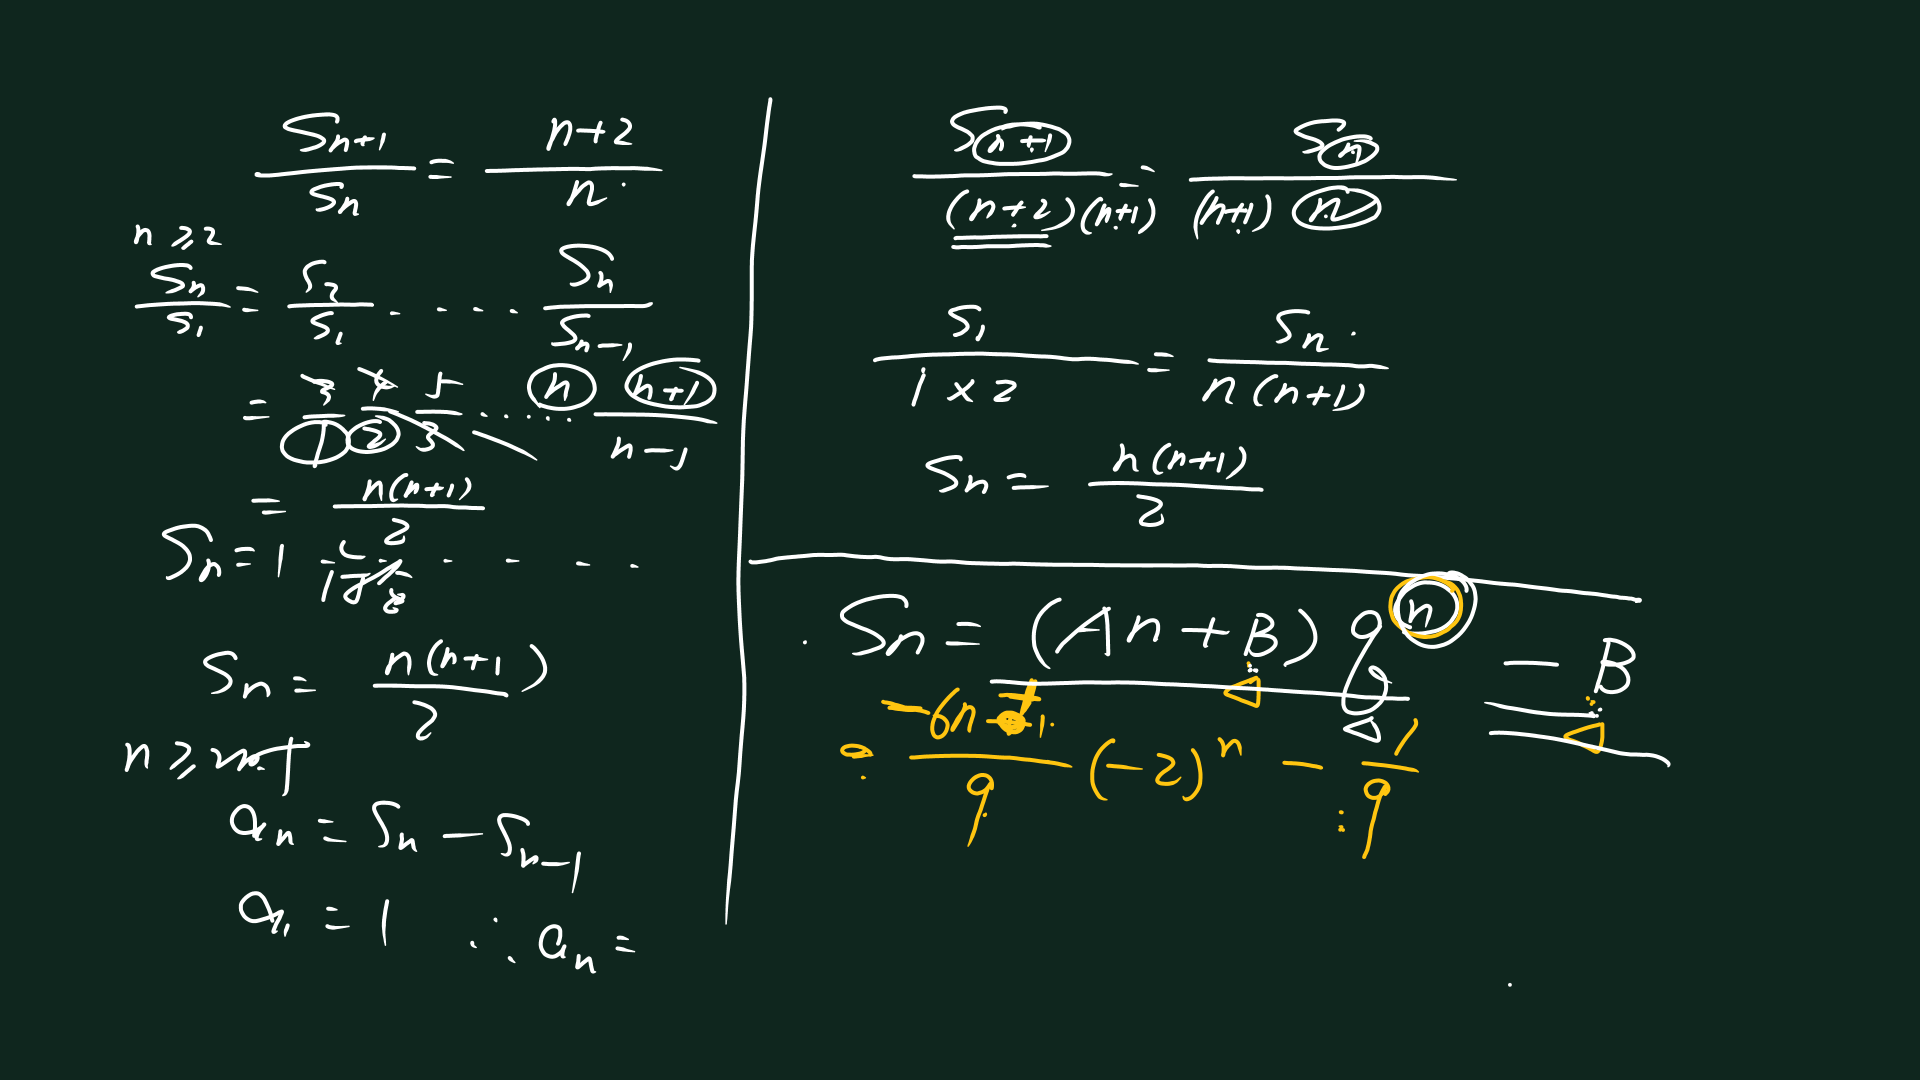 S_{n+1}/S_n = n+2/n
n ≥ 2
S_n/S_1 = S_2/S_1 · · · · S_n/S_{n-1}
= 3/1 4/2 5/3 ······ n n+1/n-1
= n(n+1)/2
S_n = 1 · · · ·
S_n = n(n+1)/2
n ≥
a_n = S_n - S_{n-1}
a_1 = 1 ∴ a_n =
S_{n+1}/(n+2)(n+1) = S_n/(n+1) n
S_1/1×2 = S_n/n(n+1)
S_n = n(n+1)/2
S_n = (An+B) q^n - B
= -6n+1/9 (-2)^n - 1/9